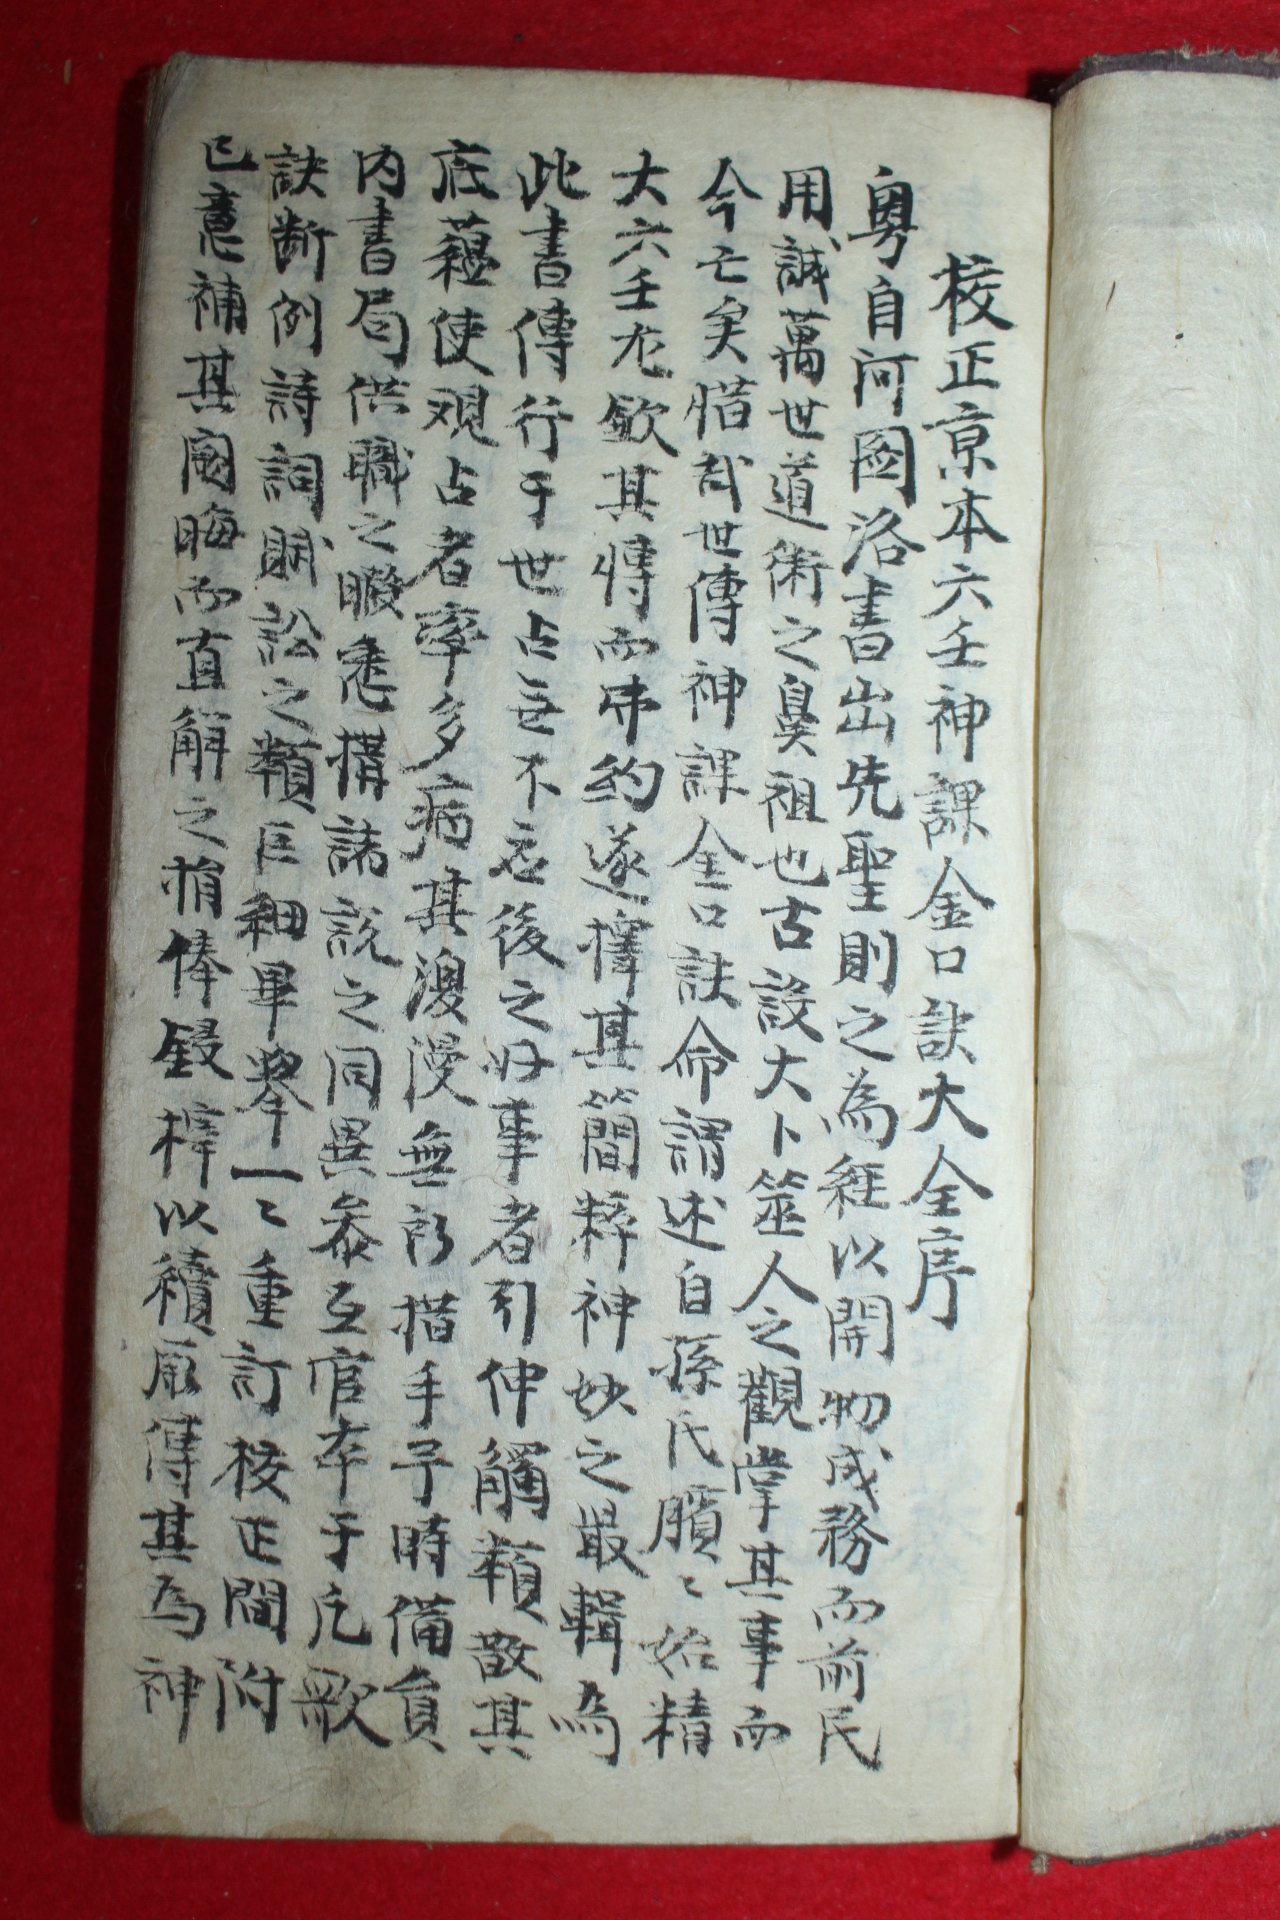 校正京本六壬神課金口訣大全序
粤自河圖洛書出先聖則之為経以開物成務而前民
用誠萬世道術之鼻祖也古設大卜筮人之觀掌其事而
今亡矣惜哉世傳神課金口訣命謂述自孫氏臏〻始精
大六壬尤欽其慱而弗約遂擇其簡粹神妙之最輯為
此書傳行于世占無不应後之好事者引伸觸類散其
底蘊使观占者率多病其漫漫無所措手予時備員
内書局供職之暇悉搆諸説之同異叅互官本于凡歌
訣断例詩詞賦訟之類巨細畢擧一〻重訂校正間附
己意補其闕晦而直解之捐俸鋟梓以續厥傳其為神